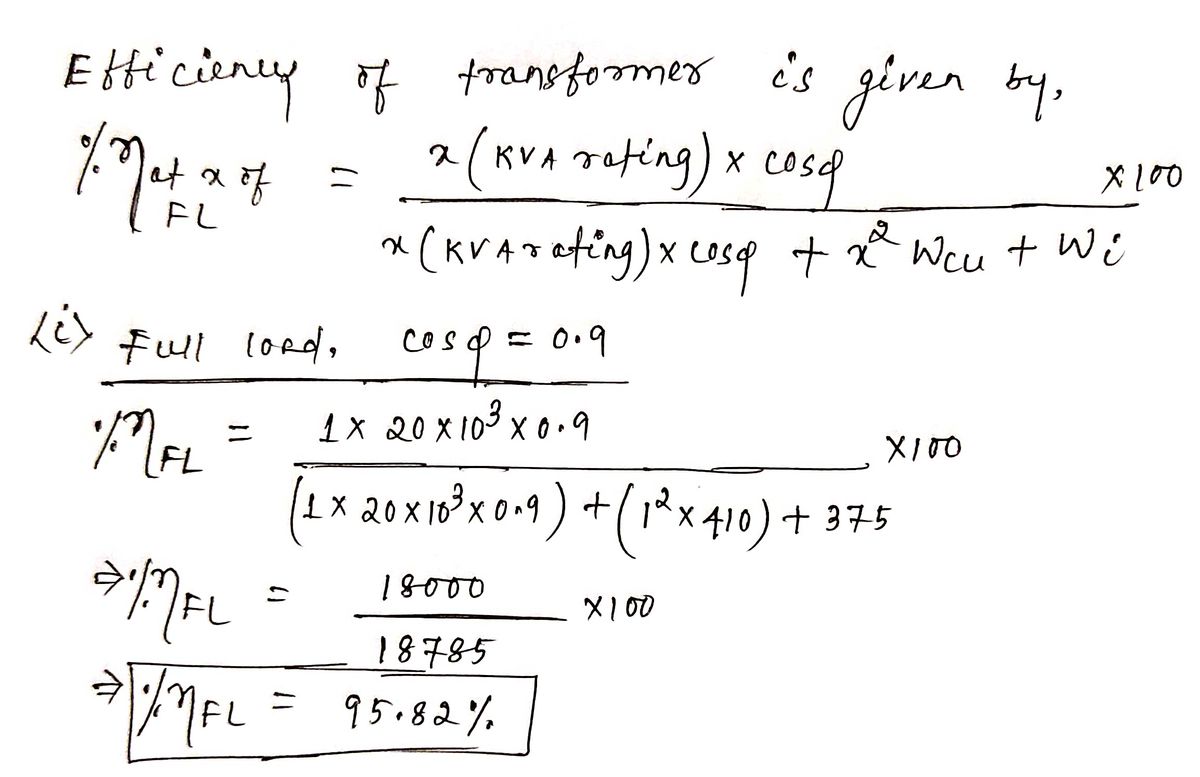 Efficiency of transformer is given by,
%η at x of FL = x (KVA rating) × cosφ / x (KVA rating) × cosφ + x² Wcu + Wi × 100
<i> Full load, cosφ = 0.9
%ηFL = 1 × 20 × 10³ × 0.9 / (1 × 20 × 10³ × 0.9) + (1² × 410) + 375 × 100
⇒ %ηFL = 18000 / 18785 × 100
⇒ %ηFL = 95.82%